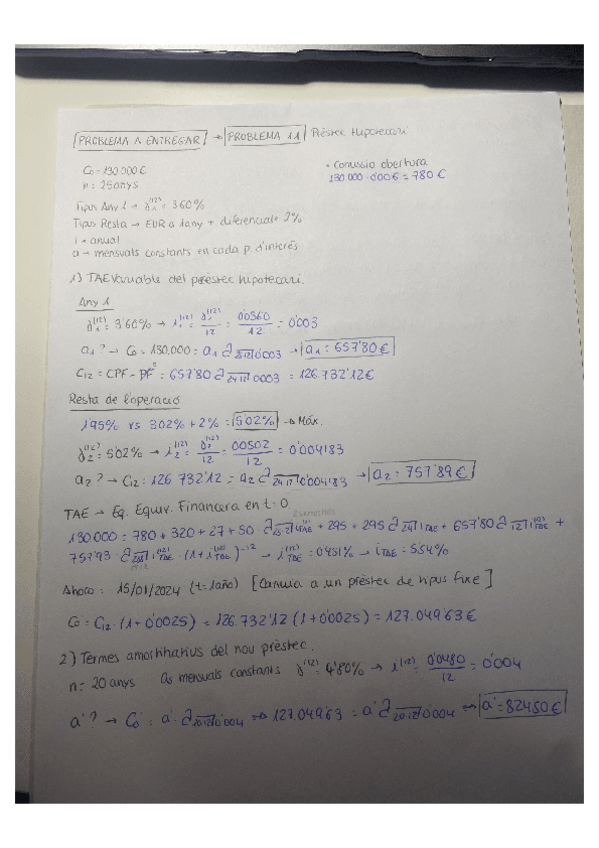 PROBLEMA A ENTREGAR → PROBLEMA 11 Préstec Hipotecari
C₀ = 130.000 €
n = 25 anys
• Comissió obertura
130.000 · 0'006 = 780 €
Tipus Any 1 → j₁⁽¹²⁾ = 3'60%
Tipus Resta → EUR a 1any + diferencial = 2%
i = anual
a → mensuals constants en cada p. d'interés
1) TAE Variable del préstec hipotecari.
Any 1
j₁⁽¹²⁾ = 3'60% → i₁⁽¹²⁾ = j₁⁽¹²⁾/12 = 0'0360/12 = 0'003
a₁? → C₀ = 130.000 = a₁ a 25·12 0'003 → a₁ = 657'80 €
C₁₂ = CPF - PF = 657'80 a 24·12 0'003 = 126.732'12 €
Resta de l'operació
1'95% vs 3'02% + 2% = 5'02% → Màx.
j₂⁽¹²⁾ = 5'02% → i₂⁽¹²⁾ = j₂⁽¹²⁾/12 = 0'0502/12 = 0'004183
a₂? → C₁₂ = 126.732'12 = a₂ a 24·12 0'004183 → a₂ = 757'89 €
TAE → Eq. Equiv. Financera en t=0
130.000 = 780 + 320 + 27 + 50 + 295 + 295 a 24 i TAE + 657'80 a 12 i TAE⁽¹²⁾ +
757'93 · a 288 i TAE⁽¹²⁾ · (1 + i TAE⁽¹²⁾)⁻¹² → i TAE⁽¹²⁾ = 0'451% → i TAE = 5'54%
Ahora: 15/01/2024 (t=1año) [Canvia a un préstec de tipus fixe]
C₀ = C₁₂ · (1 + 0'0025) = 126.732'12 (1 + 0'0025) = 127.049'63 €
2) Termes amortitzatius del nou préstec.
n = 20 anys As mensuals constants j⁽¹²⁾ = 4'80% → i⁽¹²⁾ = 0'0480/12 = 0'004
a'? → C₀' = a' a 20·12 0'004 → 127.049'63 = a' a 20·12 0'004 → a' = 824'50 €